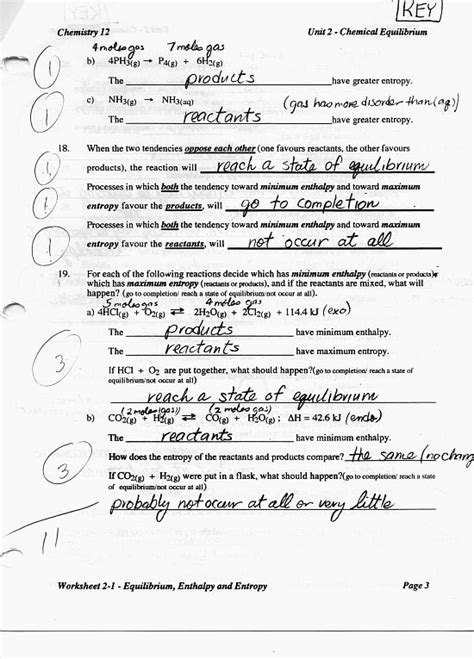 KEY
Chemistry 12 Unit 2 - Chemical Equilibrium
4 moles gas 7 moles gas
b) 4PH3(g) → P4(g) + 6H2(g)
1 The products have greater entropy.
c) NH3(g) → NH3(aq) (gas has more disorder than (aq)
1 The reactants have greater entropy.
18. When the two tendencies oppose each other (one favours reactants, the other favours
1 products), the reaction will reach a state of equilibrium
Processes in which both the tendency toward minimum enthalpy and toward maximum
1 entropy favour the products, will go to completion
Processes in which both the tendency toward minimum enthalpy and toward maximum
1 entropy favour the reactants, will not occur at all
19. For each of the following reactions decide which has minimum enthalpy (reactants or products),
which has maximum entropy (reactants or products), and if the reactants are mixed, what will
happen? (go to completion/ reach a state of equilibrium/not occur at all).
5 moles gas 4 moles gas
a) 4HCl(g) + O2(g) ⇌ 2H2O(g) + 2Cl2(g) + 114.4 kJ (exo)
The products have minimum enthalpy.
The reactants have maximum entropy.
3 If HCl + O2 are put together, what should happen?(go to completion/ reach a state of
equilibrium/not occur at all)
reach a state of equilibrium
(2 moles (gas)) (2 moles gas)
b) CO2(g) + H2(g) ⇌ CO(g) + H2O(g); ΔH = 42.6 kJ (endo)
The reactants have minimum enthalpy.
How does the entropy of the reactants and products compare? the same (no chang
3 If CO2(g) + H2(g) were put in a flask, what should happen?(go to completion/ reach a state
of equilibrium/not occur at all)
probably not occur at all or very little
11
Worksheet 2-1 - Equilibrium, Enthalpy and Entropy Page 3